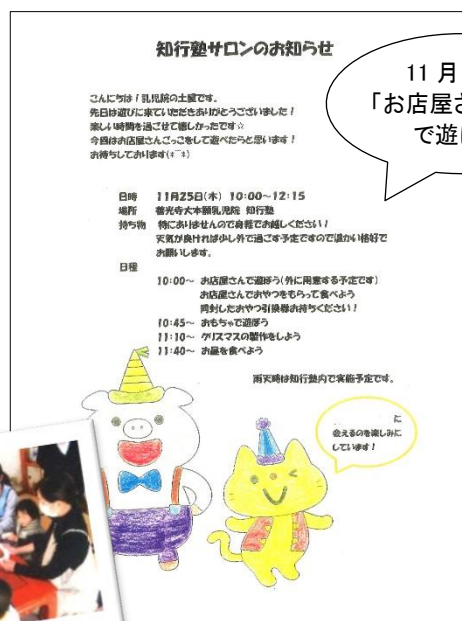 知行塾サロンのお知らせ
11月
「お店屋さ
で遊
こんにちは！乳児院の土屋です。
先日は遊びに来ていただきありがとうございました！
楽しい時間を過ごせて嬉しかったです☆
今回はお店屋さんごっこをして遊べたらと思います！
お待ちしております(*^_^*)
日時 11月25日(木) 10:00~12:15
場所 善光寺大本願乳児院 知行塾
持ち物 特にありませんので身軽でお越しください！
天気が良ければ少し外で過ごす予定ですので温かい格好で
お願いします。
日程
10:00~ お店屋さんで遊ぼう(外に用意する予定です)
お店屋さんでおやつをもらって食べよう
同封したおやつ引換券お持ちください！
10:45~ おもちゃで遊ぼう
11:10~ クリスマスの製作をしよう
11:40~ お昼を食べよう
雨天時は知行塾内で実施予定です。
に
会えるのを楽しみに
しています！